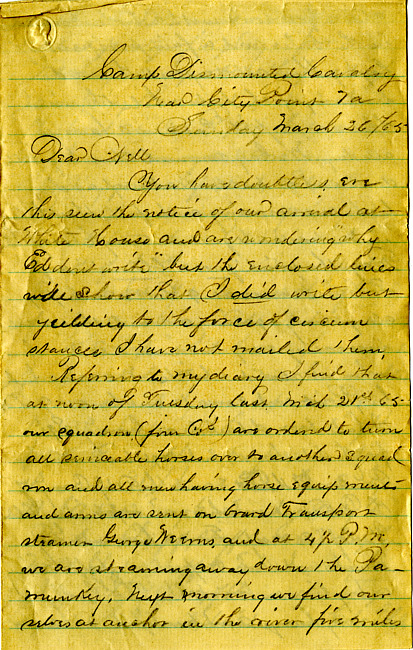 Camp Dismounted Cavalry
Near City Point Va
Sunday March 26/65
Dear Nell
You have doubtless, ere
this seen the notice of our arrival at
White House and are wondering "why
Ed dont write" but the enclosed lines
will show that I did write but
yeilding to the force of circum
stances I have not mailed them.
Referring to my diary I find that
at noon of Tuesday last Mch 21st 65
our squadron (four Cos) are ordered to turn
all serviceable horses over to another squad
ron and all men having horse equipments
and arms are sent on board Transport
steamer George Weems, and at 4½ P.M.
we are steaming away down the Pa-
munkey. Next morning we find our
selves at anchor in the river five miles